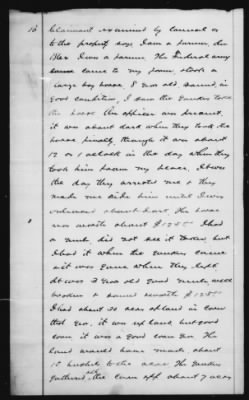 16 Claimant examined by Counsel as
to the property says I am a farmer, in
1862 I was a farmer. The Federal army
came to my farm, & took a
large bay horse, 8 years old, sound, in
good condition, I saw the Yankees take
the horse An officer was present.
it was about dark when they took the
horse finally, though it was about
12 or 1 o'clock in the day when they
took him from my place. It was
the day they arrested me & they
made me ride him until I was
about dark. The horse
was worth about $125 I had
a mule, did not see it taken but
I had it when the Yankees came
& it was gone when they left.
It was 3 year old good mule well
broken & sound worth $125
I had about 30 acres upland in corn
that year, it was upland but good
corn it was a good corn year The
land would have made about
15 bushels to the acre The Yankees
gathered all the corn off about 7 acres